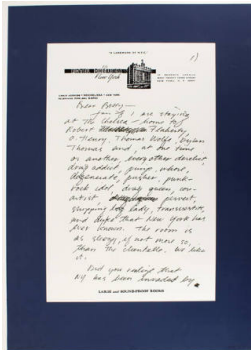 "A LANDMARK OF N.Y.C."
1)
New York
Dear Betty —
Jan & I are staying
at The Chelsea — home to
Robert Flaherty,
O. Henry, Thomas Wolfe, Dylan
Thomas and, at one time
or another, every other derelict,
drug addict, pimp, whore,
degenerate, pusher, punk-
rock idol, drag queen, con-
artist, pervert,
shopping bag lady, transvestite,
and dupe that New York has
ever known. The room is
as sleazy, if not more so,
than the clientelle. We like
it.
And you realize that
NY has been invaded by
LARGE AND SOUND-PROOF ROOMS